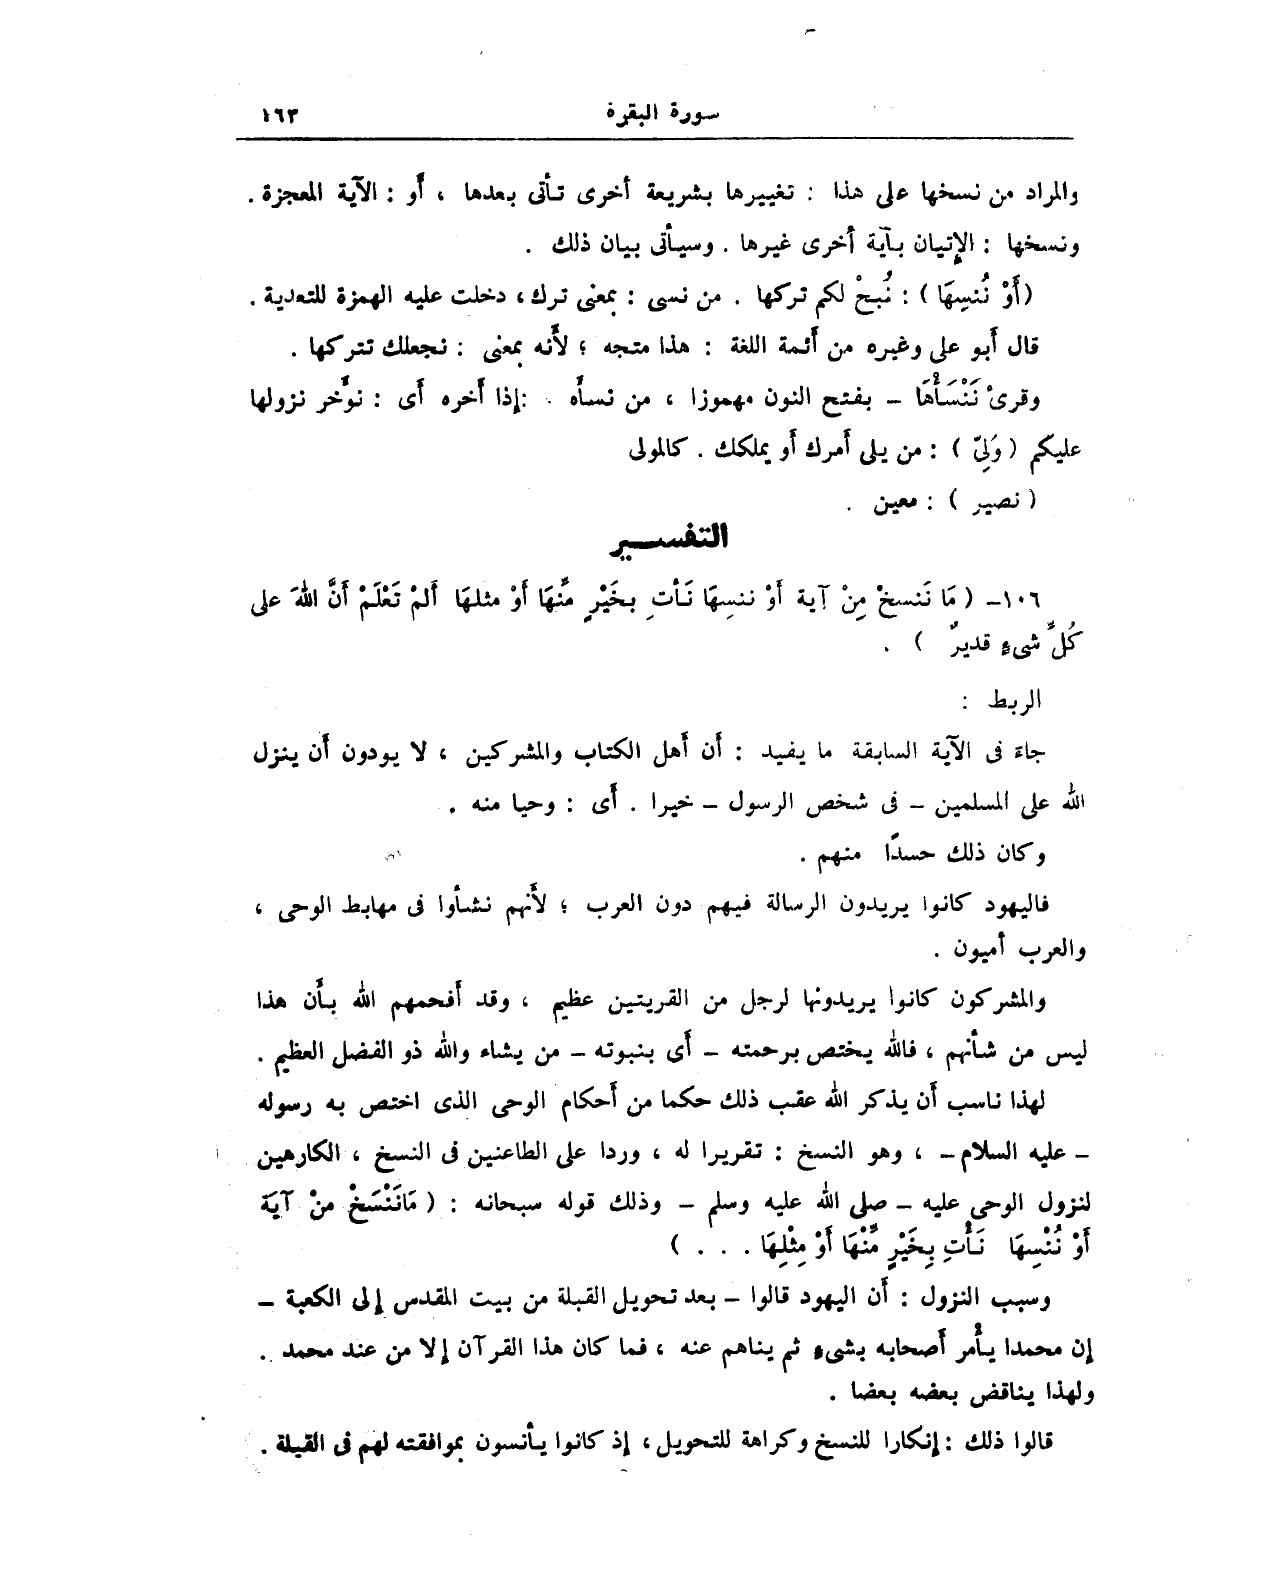 سورة البقرة ١٦٣
والمراد من نسخها على هذا : تغييرها بشريعة أخرى تأتى بعدها ، أو : الآية المعجزة .
ونسخها : الإتيان بآية أخرى غيرها . وسيأتى بيان ذلك .
(أَوْ نُنسِهَا) : نُبحْ لكم تركها . من نسى : بمعنى ترك، دخلت عليه الهمزة للتعدية .
قال أبو على وغيره من أئمة اللغة : هذا متجه ؛ لأنه بمعنى : نجعلك تتركها .
وقرئْ نَنْسَأْهَا – بفتح النون مهموزا ، من نسأه :إذا أخره أى : نؤخر نزولها
عليكم (وَلِىّ ) : من يلى أمرك أو يملكك . كالمولى
( نصير ) : معين .
التفسـير
١٠٦– ( مَا نَنسخْ مِنْ آية أَوْ ننسِهَا نَأتِ بخَيْرٍ مِّنْهَا أَوْ مثلهَا أَلمْ تَعْلَمْ أَنَّ اللهَ على
كُلِّ شىءٍ قديرٌ ) .
الربط :
جاءَ فى الآية السابقة ما يفيد : أن أهل الكتاب والمشركين ، لا يودون أن ينزل
الله على المسلمين – فى شخص الرسول – خيرا . أى : وحيا منه .
وكان ذلك حسدًا منهم .
فاليهود كانوا يريدون الرسالة فيهم دون العرب ؛ لأنهم نشأوا فى مهابط الوحى ،
والعرب أميون .
والمشركون كانوا يريدونها لرجل من القريتين عظيم ، وقد أفحمهم الله بأن هذا
ليس من شأنهم ، فالله يختص برحمته – أى بنبوته – من يشاء والله ذو الفضل العظيم .
لهذا ناسب أن يذكر الله عقب ذلك حكما من أحكام الوحى الذى اختص به رسوله
– عليه السلام– ، وهو النسخ : تقريرا له ، وردا على الطاعنين فى النسخ ، الكارهين
لنزول الوحى عليه – صلى الله عليه وسلم – وذلك قوله سبحانه : ( مَانَنْسَخْ منْ آيَة
أَوْ نُنْسِهَا نَأْتِ بِخَيْرٍ مِّنْهَا أَوْ مِثْلِهَا . . . )
وسبب النزول : أن اليهود قالوا – بعد تحويل القبلة من بيت المقدس إلى الكعبة –
إن محمدا يأْمر أصحابه بشىءٍ ثم ينهاهم عنه ، فما كان هذا القرآن إلا من عند محمد .
ولهذا يناقض بعضه بعضا .
قالوا ذلك :إنكارا للنسخ وكراهة للتحويل، إذ كانوا يأنسون بموافقته لهم فى القبلة .